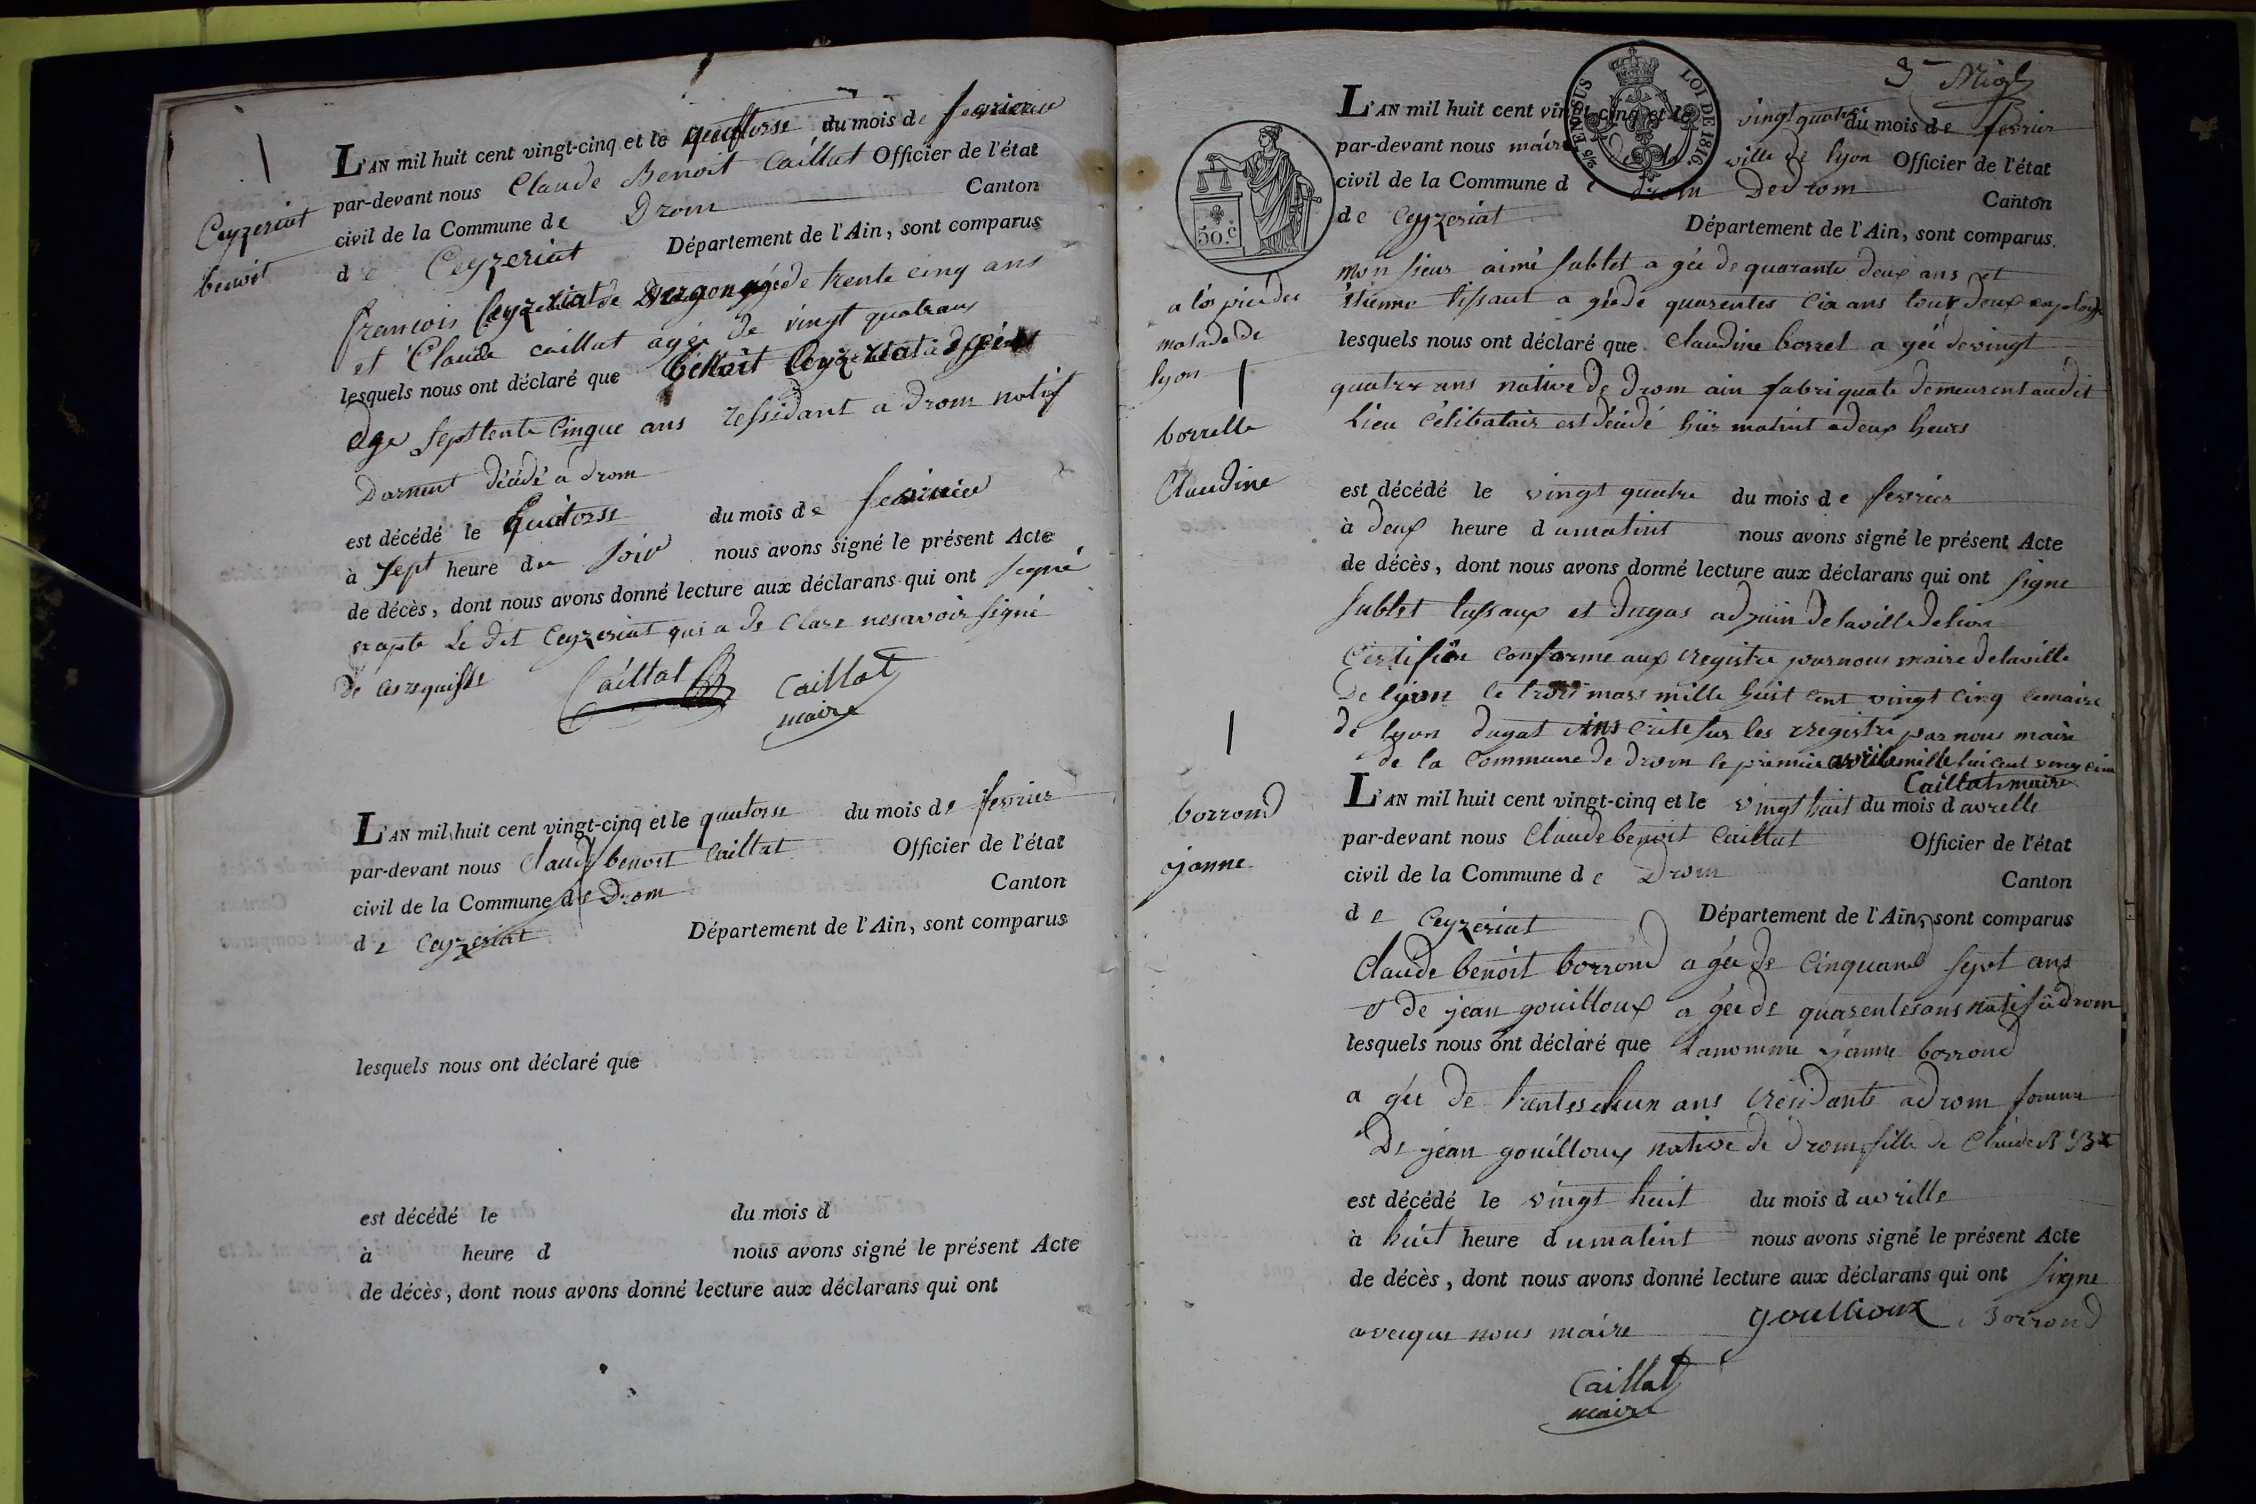 Ceyzeriat
benoit
L'AN mil huit cent vingt-cinq et le quattorse du mois de fevrier
par-devant nous Claude Benoit Caillat Officier de l'état
civil de la Commune de Drom Canton
de Ceyzeriat Département de l'Ain, sont comparus
francois Ceyzeriat de agé de trente cinq ans
et Claude caillat agée de vingt quatrans
lesquels nous ont déclaré que benoit Ceyzeriat
age septtente Cinque ans ressidant a drom natif
décédé a drom
est décédé le quatorse du mois de fevrier
à sept heure du soir nous avons signé le présent Acte
de décès, dont nous avons donné lecture aux déclarans qui ont signé
exapte Le dit Ceyzeriat qui a de Clare nesavoir signé
de ces requisse
Caillat Caillat
maire
L'AN mil huit cent vingt-cinq et le quatorse du mois de fevrier
par-devant nous Claude benoit Caillat Officier de l'état
civil de la Commune de Drom Canton
de Ceyzeriat Département de l'Ain, sont comparus
lesquels nous ont déclaré que
est décédé le du mois d
à heure d nous avons signé le présent Acte
de décès, dont nous avons donné lecture aux déclarans qui ont
EN SUS
LOI DE 1816.
50.c
L'AN mil huit cent vingt-cinq et le vingt quatre du mois de fevrier
par-devant nous maire de la ville de lyon Officier de l'état
civil de la Commune de drom De drom Canton
de Ceyzeriat Département de l'Ain, sont comparus.
a l'ospice des
malade de
lyon
borrelle
Claudine
mon sieur aimé sublet a gée de quarante deux ans et
étienne tissaut a gée de quarentes Cix ans tous deux
lesquels nous ont déclaré que Claudine borrel a gée de vingt
quatre ans native de drom ain fabriquate demeurent audit
Lieu Célibatair est décédé hier matint a deux heurs
est décédé le vingt quatre du mois de fevrier
à deux heure dumatint nous avons signé le présent Acte
de décès, dont nous avons donné lecture aux déclarans qui ont signe
Sublet tussaux et dugas adjuin delaville delion
Certifiée conforme aux registre parnous maire delaville
de lyon le trois mars mille huit cent vingt cinq lemaire
de lyon dugat inscrite sur les registre par nous maire
de la Commune de drom le premier avrile mille huicent vingcinc
Caillat maire
borrond
janne
L'AN mil huit cent vingt-cinq et le vingt huit du mois d avrelle
par-devant nous Claude benoit Caillat Officier de l'état
civil de la Commune de Drom Canton
de Ceyzeriat Département de l'Ain, sont comparus
Claude benoit borrond a gée de Cinquant sept ans
et de jean gouilloux a gée de quarentes ans natif a drom
lesquels nous ont déclaré que Lanomme janne borrond
a gée de ans résidante a drom femme
De jean gouilloux native de drom fille de Claude
est décédé le vingt huit du mois d avrille
à huit heure dumatint nous avons signé le présent Acte
de décès, dont nous avons donné lecture aux déclarans qui ont signe
avecque nous maire goullioux Borrond
Caillat
maire